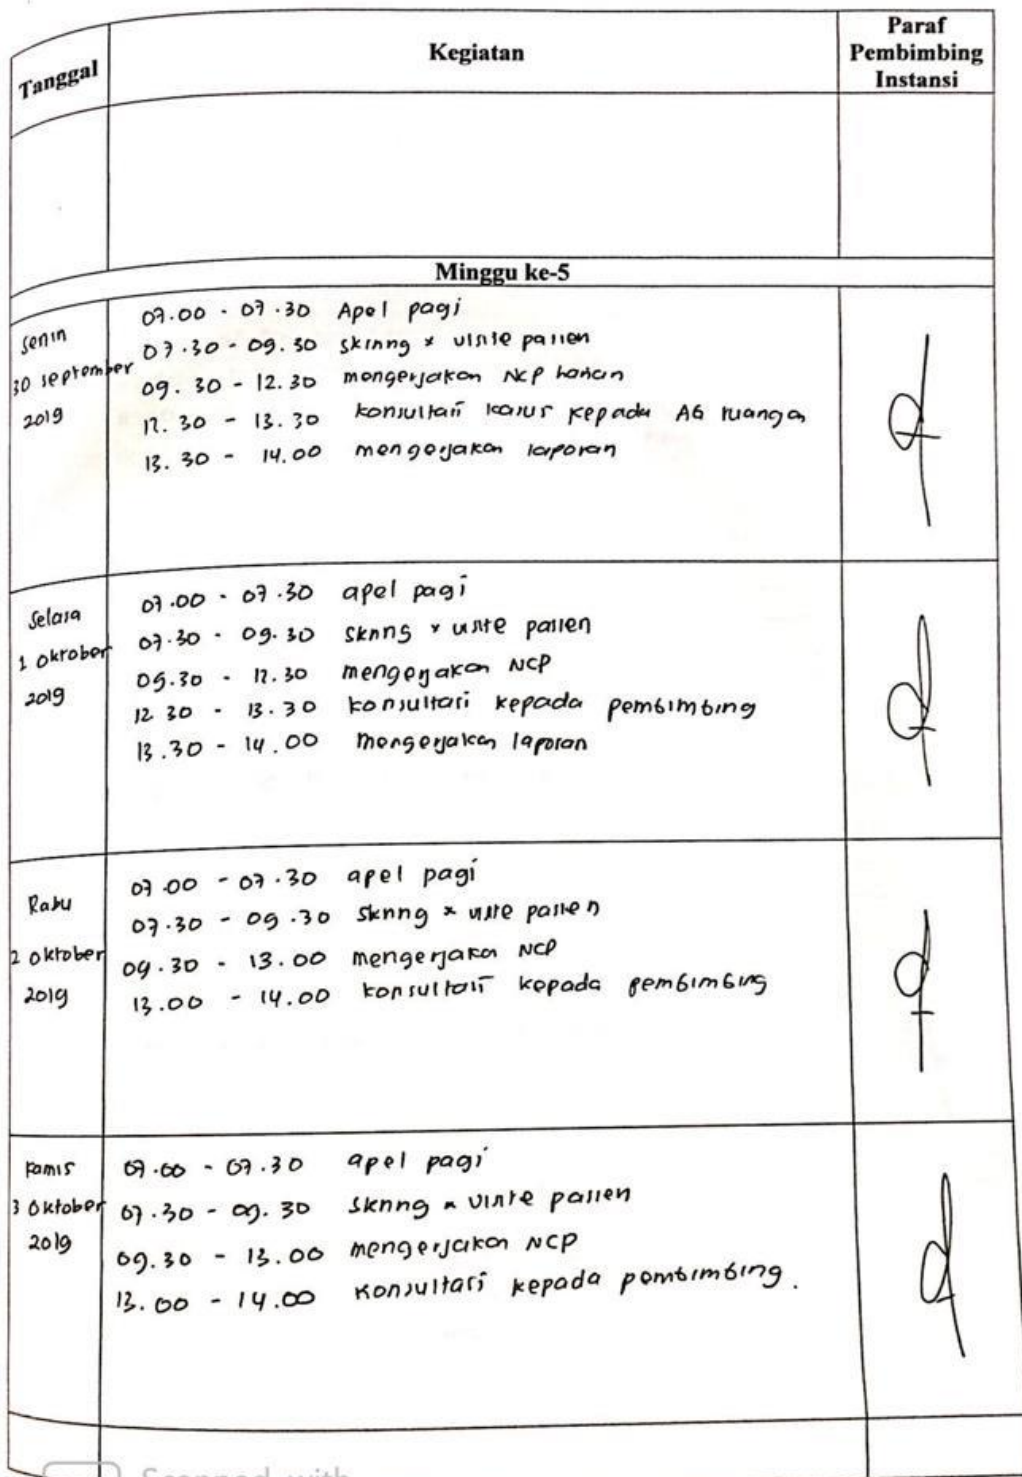 Tanggal
Kegiatan
Paraf
Pembimbing
Instansi
Minggu ke-5
Senin
30 september
2019
07.00 - 07.30 Apel pagi
07.30 - 09.30 skrining & visite pasien
09.30 - 12.30 mengerjakan NCP harian
12.30 - 13.30 konsultasi kasus kepada AG ruangan
13.30 - 14.00 mengerjakan laporan
Selasa
1 Oktober
2019
07.00 - 07.30 apel pagi
07.30 - 09.30 skrining & visite pasien
09.30 - 12.30 mengerjakan NCP
12.30 - 13.30 konsultasi kepada pembimbing
13.30 - 14.00 mengerjakan laporan
Rabu
2 Oktober
2019
07.00 - 07.30 apel pagi
07.30 - 09.30 skrining & visite pasien
09.30 - 13.00 mengerjakan NCP
13.00 - 14.00 konsultasi kepada pembimbing
Kamis
3 Oktober
2019
07.00 - 07.30 apel pagi
07.30 - 09.30 skrining & visite pasien
09.30 - 13.00 mengerjakan NCP
13.00 - 14.00 Konsultasi kepada pembimbing.
Scanned with